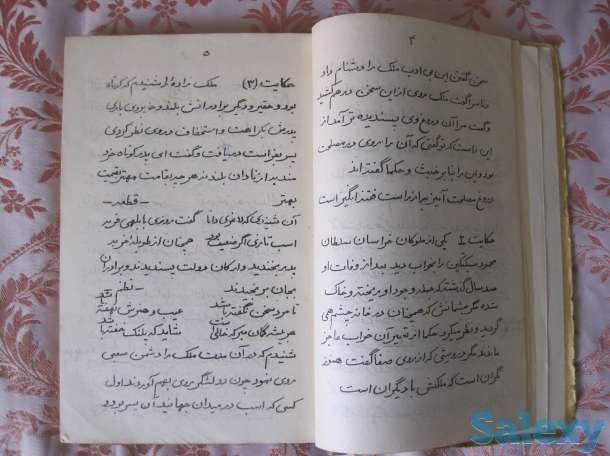 ۴
سخن گفتن این بی ادب ملک را دشنام داد
و ناسزا گفت ملک روی از این سخن درهم کشید
و گفت مرا آن دروغ وی پسندیده تر آمد از
این راست که تو گفتی که آن را روی در مصلحتی
بود و این را بنا بر خبث و حکما گفته‌اند
دروغ مصلحت آمیز به از راست فتنه انگیز است
حکایت ۲ یکی از ملوکان خراسان سلطان
محمود سبکتکین را بخواب دید بعد از وفات او
صد سال گذشته که جمله وجود او بریخته و خاک
شده مگر چشمانش که همچنان در خانه چشم همی
گردید و نظر میکرد حکما از تعبیر آن خواب عاجز
ماندند مگر درویشی که از روی صفا گفت هنوز
نگران است که ملکش با دیگران است
۵
حکایت (۳) ملک زاده را شنیدم که کوتاه
بود و حقیر و دیگر برادرانش بلند و خوبروی باری
پدرش بکراهت و استحقار در وی نظر کردی
پسر بفراست دریافت و گفت ای پدر کوتاه خردمند
به از نادان بلند نه هر چه بقامت مهتر بقیمت
بهتر - قطعه -
آن شنیدی که لاغری دانا گفت روزی بابلهی فربه
اسب تازی اگر ضعیف بود همچنان از طویله خر به
پدر بخندید و ارکان دولت پسندیدند و برادران
بجان برنجیدند - نظم -
تا مرد سخن نگفته باشد عیب و هنرش نهفته باشد
هر بیشه گمان مبر که خالی شاید که پلنگ خفته باشد
شنیدم که در آن مدت ملک را دشمن صعبی
روی نمود چون دو لشگر روی بهم آوردند اول
کسی که اسب در میدان جهانید آن پسر بود و
Salexy